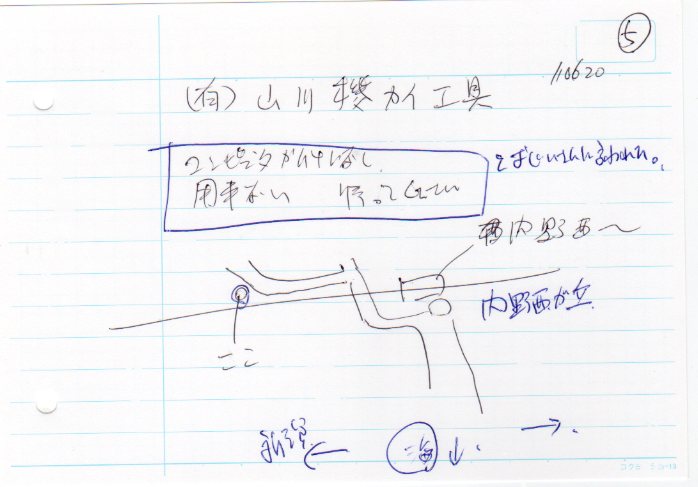 ⑤
110620
(有)山川機カイ工具
コンピュータがければ
用事ない 帰ってください
とずじいさんに言われた。
西内野西へ
内野西が丘
ここ
新潟 ←
海 ↓
→